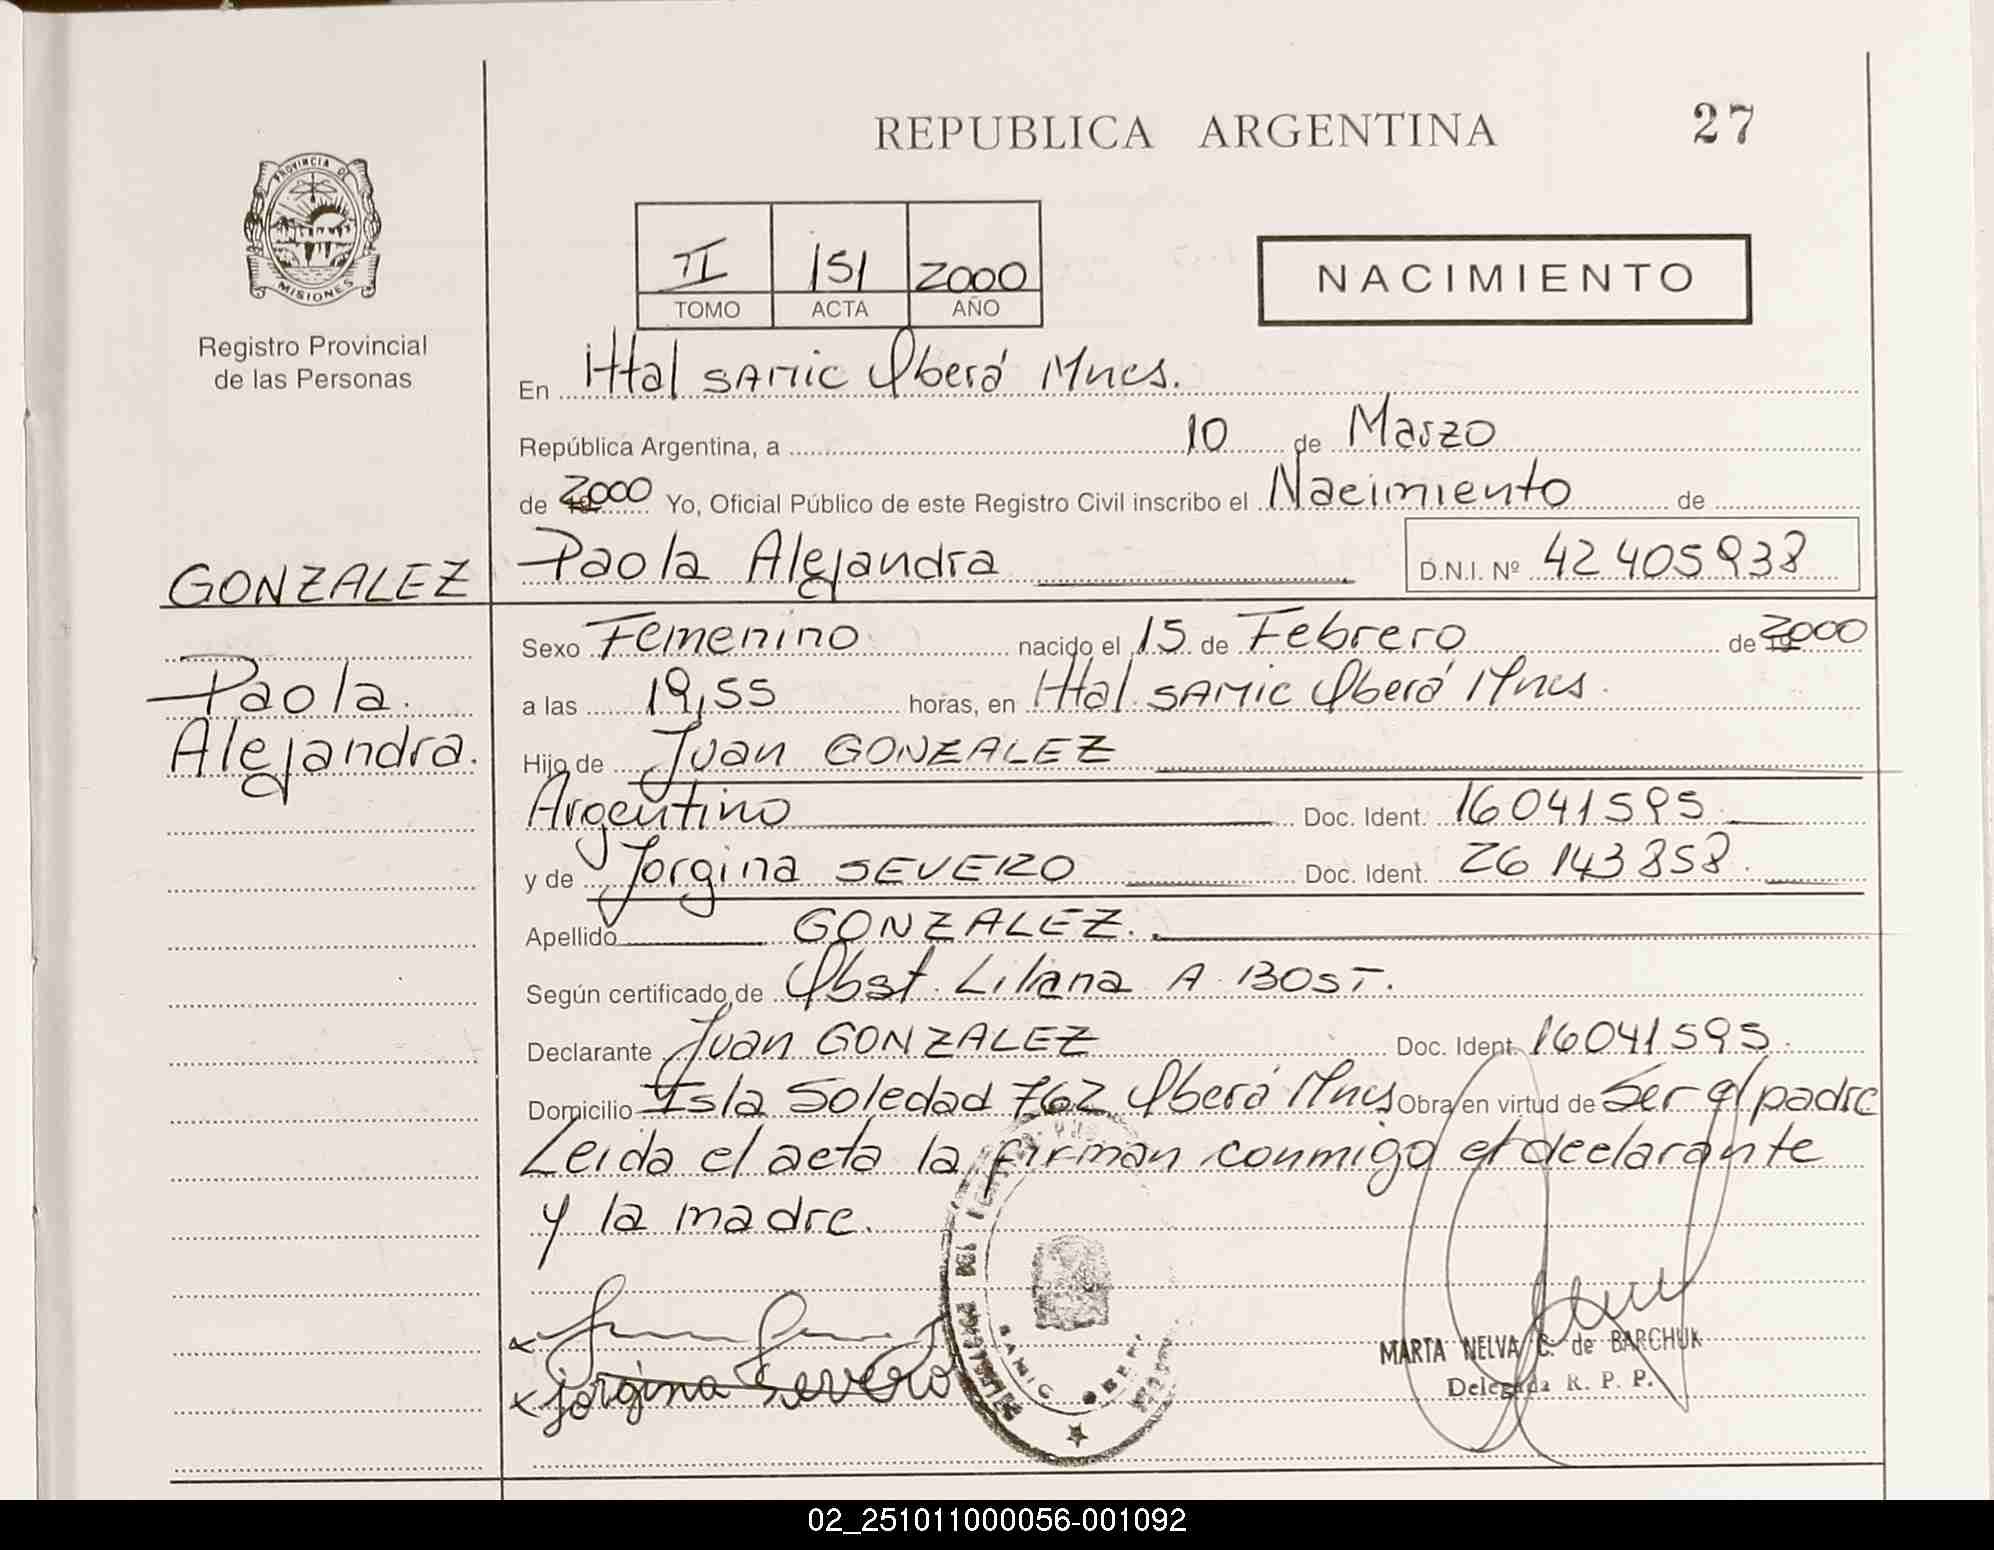 REPUBLICA ARGENTINA
27
PROVINCIA DE
MISIONES
Registro Provincial
de las Personas
II 151 2000
TOMO ACTA AÑO
NACIMIENTO
En Httal SAMIC Oberá Mnes.
República Argentina, a 10 de Marzo
de 2000 Yo, Oficial Público de este Registro Civil inscribo el Nacimiento de
Paola Alejandra D.N.I. Nº 42 405 938
GONZALEZ
Paola
Alejandra.
Sexo Femenino nacido el 15 de Febrero de 2000
a las 19,55 horas, en Httal. SAMIC Oberá Mnes.
Hijo de Juan GONZALEZ
Argentino Doc. Ident. 16041595
y de Jorgina SEVERO Doc. Ident. 26 143 858.
Apellido GONZALEZ.
Según certificado de Obst. Liliana A. BOST.
Declarante Juan GONZALEZ Doc. Ident. 16041595.
Domicilio Isla Soledad 762 Oberá Mnes Obra en virtud de Ser el padre
Leida el acta la firman conmigo el declarante
y la madre.
jorgina Severo
SAMIC OBERA
MARTA NELVA C. de BARCHUK
Delegada R. P. P.
02_251011000056-001092